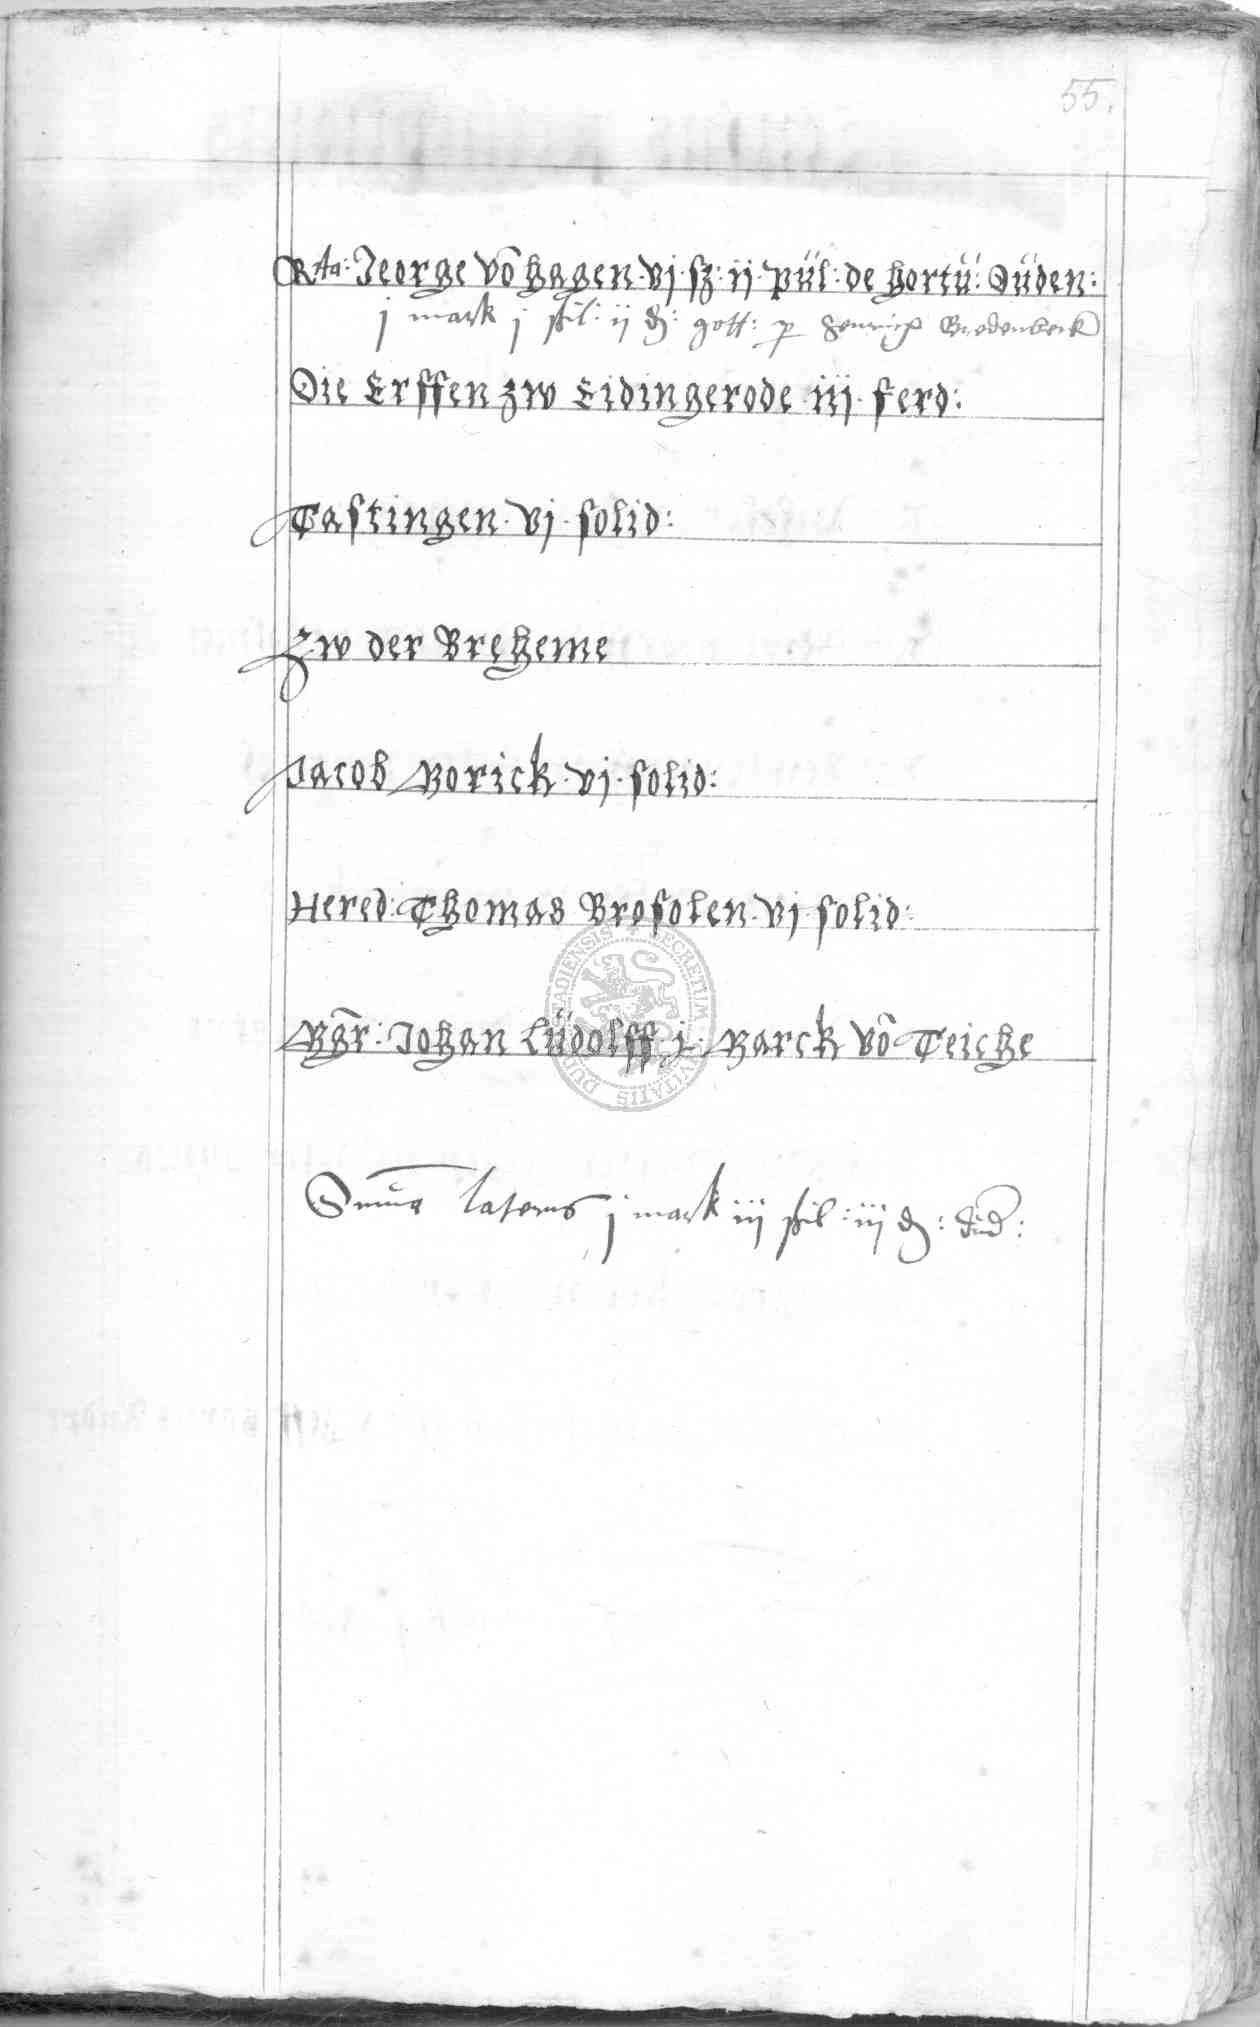 55.
Rta: Jeorge vō Hagen · vj · sz · ij · pül: de Hortū: Düden:
j mark j ßil: ij ₰: gott: p Henrich Bredenbeck
Die Erffen zw Eidingerode · iij · ferd:
Tastingen · vj · solid:
Zw der Breheme
Jacob Borick · vj · solid:
Hered: Thomas Brosolen · vj · solid:
Bgr̄: Johan Lüdolff · j · Marck vō Teiche
Sum̄a lateris j mark iij ßil: iij ₰: dud:
SECRETUM CIVITATIS DUDERSTADIENSIS